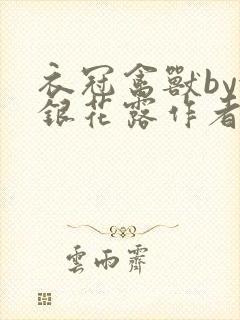 衣冠禽獸by
銀花露作者
雲雨齋